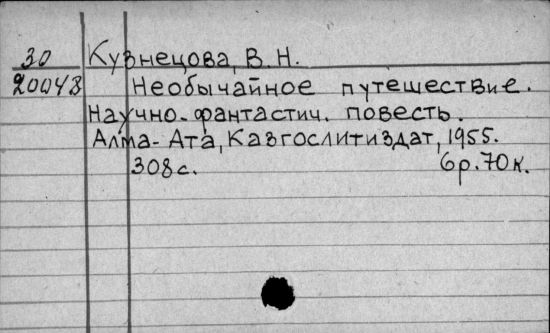 30 Кузнецова, В. Н.
20048 Необычайное путешествие.
Научно-фантастич. повесть.
Алма-Ата, Казгослитиздат, 1955.
308с. 6р.70к.